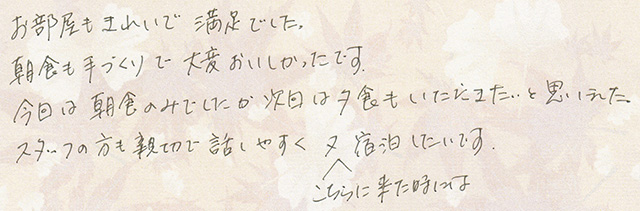 お部屋もきれいで 満足でした。
朝食も手づくりで 大変おいしかったです。
今回は朝食のみでしたが次回は夕食もいただきたいと思いました。
スタッフの方も親切で話しやすく 又 宿泊したいです。
こちらに来た時には